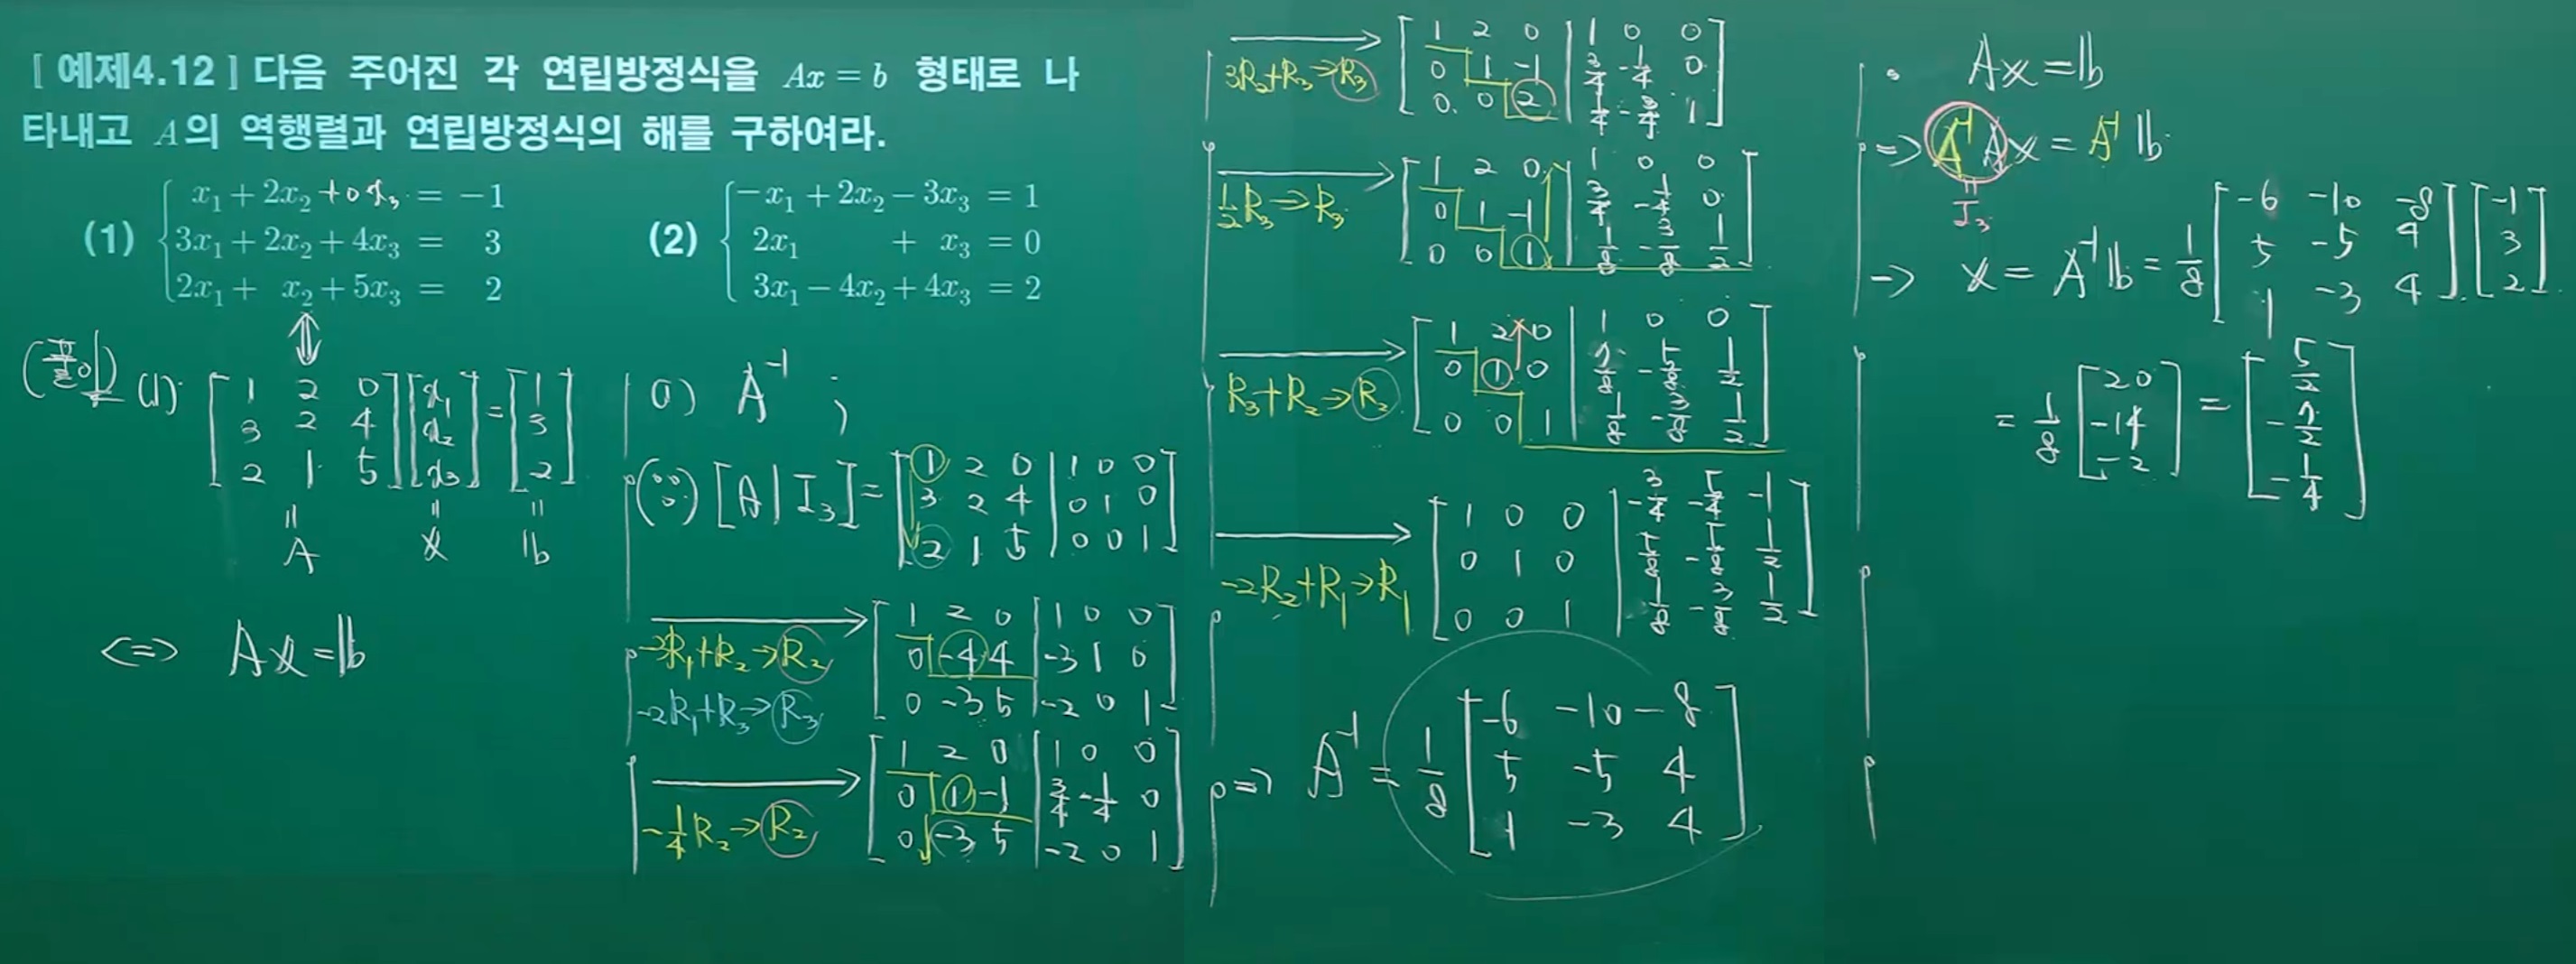 [ 예제4.12 ] 다음 주어진 각 연립방정식을 Ax = b 형태로 나
타내고 A의 역행렬과 연립방정식의 해를 구하여라.
(1) x₁ + 2x₂ +0x₃ = −1
3x₁ + 2x₂ + 4x₃ = 3
2x₁ + x₂ + 5x₃ = 2
(2) −x₁ + 2x₂ − 3x₃ = 1
2x₁ + x₃ = 0
3x₁ − 4x₂ + 4x₃ = 2
(풀이) (1).
[1 2 0] [x₁] = [1]
[3 2 4] [x₂] [3]
[2 1 5] [x₃] [2]
= = =
A x b
<=> Ax = b
0) A⁻¹ ;
(∵) [A | I₃] = [1 2 0 | 1 0 0]
[3 2 4 | 0 1 0]
[2 1 5 | 0 0 1]
-3R₁+R₂→R₂
-2R₁+R₃→R₃
[1 2 0 | 1 0 0]
[0 -4 4 | -3 1 0]
[0 -3 5 | -2 0 1]
-1/4 R₂→R₂
[1 2 0 | 1 0 0]
[0 1 -1 | 3/4 -1/4 0]
[0 -3 5 | -2 0 1]
3R₂+R₃→R₃
[1 2 0 | 1 0 0]
[0 1 -1 | 3/4 -1/4 0]
[0 0 2 | 1/4 -3/4 1]
1/2 R₃→R₃
[1 2 0 | 1 0 0]
[0 1 -1 | 3/4 -1/4 0]
[0 0 1 | 1/8 -3/8 1/2]
R₃+R₂→R₂
[1 2 0 | 1 0 0]
[0 1 0 | 7/8 -5/8 1/2]
[0 0 1 | 1/8 -3/8 1/2]
-2R₂+R₁→R₁
[1 0 0 | -3/4 -5/4 -1]
[0 1 0 | 7/8 -5/8 1/2]
[0 0 1 | 1/8 -3/8 1/2]
=> A⁻¹ = 1/8 [-6 -10 -8]
[5 -5 4]
[1 -3 4]
Ax = b
=> A⁻¹Ax = A⁻¹b
=
I₃
→ x = A⁻¹b = 1/8 [-6 -10 -8] [-1]
[5 -5 4] [3]
[1 -3 4] [2]
= 1/8 [20] = [5/2]
[-14] [-7/2]
[-2] [-1/4]